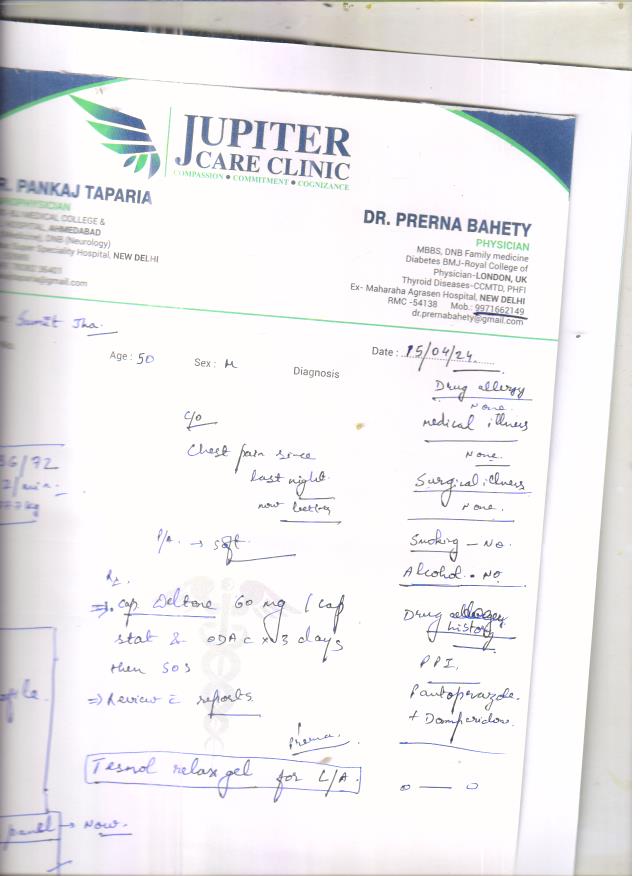 JUPITER
CARE CLINIC
COMPASSION • COMMITMENT • COGNIZANCE
R. PANKAJ TAPARIA
MEDICAL COLLEGE &
HOSPITAL, AHMEDABAD
DNB (Neurology)
Super Speciality Hospital, NEW DELHI
@gmail.com
DR. PRERNA BAHETY
PHYSICIAN
MBBS, DNB Family medicine
Diabetes BMJ-Royal College of
Physician-LONDON, UK
Thyroid Diseases-CCMTD, PHFI
Ex- Maharaha Agrasen Hospital, NEW DELHI
RMC -54138 Mob.: 9971662149
dr.prernabahety@gmail.com
Sumit Jha.
Age : 50 Sex : M Diagnosis Date : 15/04/24
Drug allergy
None.
medical illness
None.
Surgical illness
None.
Smoking - No.
Alcohol - No
Drug history
PPI.
Pantoprazole
+ Domperidon
c/o
Chest pain since
last night.
now
P/A. → soft
Rx.
⇒ 1. cap 60 mg 1 cap
stat & ODAC x 3 days
then SOS
⇒ Review c̄ reports.
Prerna.
relax gel for L/A.
36/72
/min.
77kg
panel → Now.